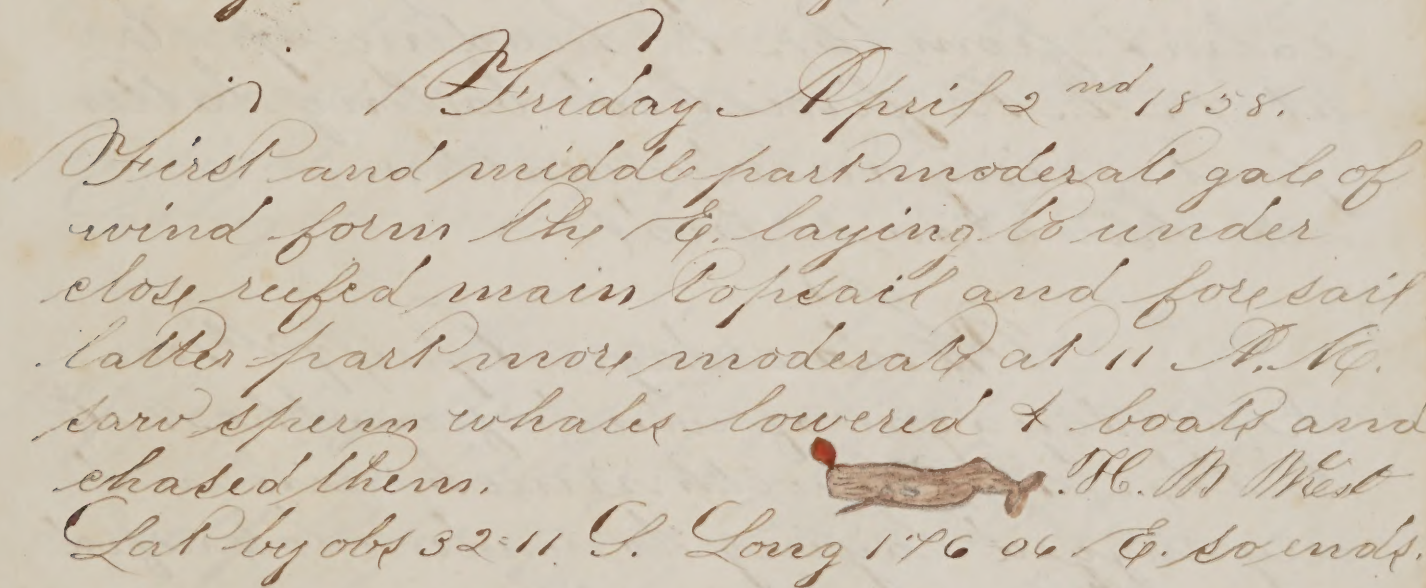 Friday April 2nd 1858.
First and middle part moderate gale of
wind form the E. laying to under
close reefed main topsail and foresail
latter part more moderate at 11 A.M.
saw sperm whales lowered 4 boats and
chased them.
H. M West
Lat by obs 32=11 S. Long 176 06 E. so ends.